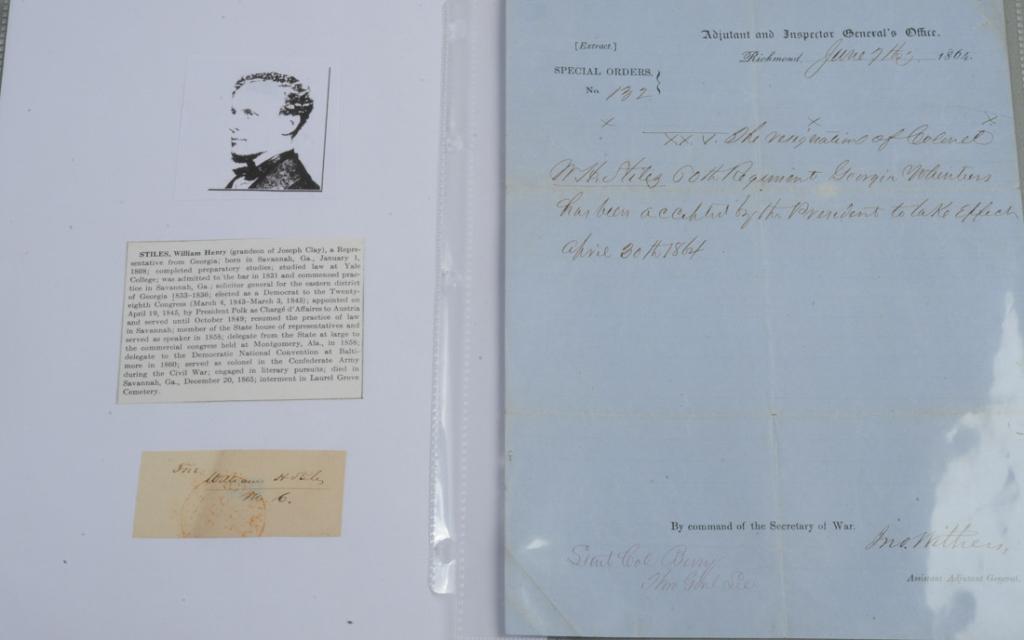 STILES, William Henry (grandson of Joseph Clay), a Repre-
sentative from Georgia; born in Savannah, Ga., January 1,
1808; completed preparatory studies; studied law at Yale
College; was admitted to the bar in 1831 and commenced prac-
tice in Savannah, Ga.; solicitor general for the eastern district
of Georgia 1833-1836; elected as a Democrat to the Twenty-
eighth Congress (March 4, 1843-March 3, 1845); appointed on
April 19, 1845, by President Polk as Chargé d'Affaires to Austria
and served until October 1849; resumed the practice of law
in Savannah; member of the State house of representatives and
served as speaker in 1858; delegate from the State at large to
the commercial congress held at Montgomery, Ala., in 1858;
delegate to the Democratic National Convention at Balti-
more in 1860; served as colonel in the Confederate Army
during the Civil War; engaged in literary pursuits; died in
Savannah, Ga., December 20, 1865; interment in Laurel Grove
Cemetery.
Free
William H Stiles
M C.
Adjutant and Inspector General's Office,
[Extract.]
Richmond June 7th, 1864.
SPECIAL ORDERS,
No. 132
x x x
XXV. The resignation of Colonel
W. H. Stiles 60th Regiment Georgia Volunteers
has been accepted by the President to take Effect
April 30th 1864
By command of the Secretary of War.
Jno. Withers
Assistant Adjutant General.
Lieut Col Berry
Thro Genl Lee